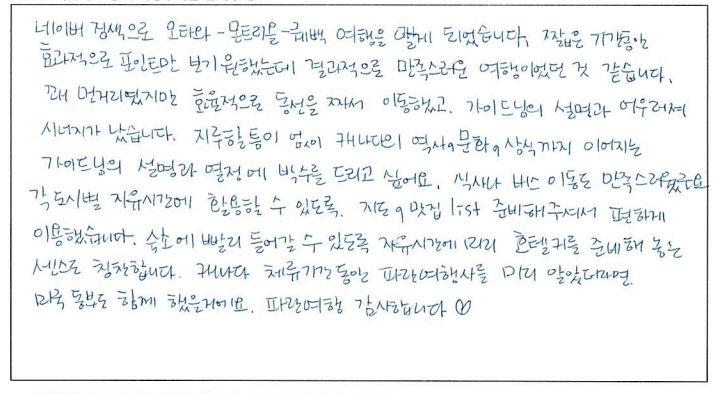 네이버 검색으로 오타와-몬트리올-퀘백 여행을 알게 되었습니다. 짧은 기간동안
효과적으로 포인트만 보기 원했는데 결과적으로 만족스러운 여행이었던 것 같습니다.
꽤 먼거리였지만 효율적으로 동선을 짜서 이동했고. 가이드님의 설명과 어우러져
시너지가 났습니다. 지루할틈이 없이 캐나다의 역사, 문화, 상식까지 이어지는
가이드님의 설명과 열정에 박수를 드리고 싶어요. 식사나 버스 이동도 만족스러웠구요
각 도시별 자유시간에 활용할 수 있도록. 지도, 맛집 list 준비해주셔서 편하게
이용했습니다. 숙소에 빨리 들어갈 수 있도록 자유시간에 미리 호텔키를 준비해 놓는
센스도 칭찬합니다. 캐나다 체류기간 동안 파란여행사를 미리 알았더라면.
미국 동부도 함께 했을거에요. 파란여행 감사합니다 ♡